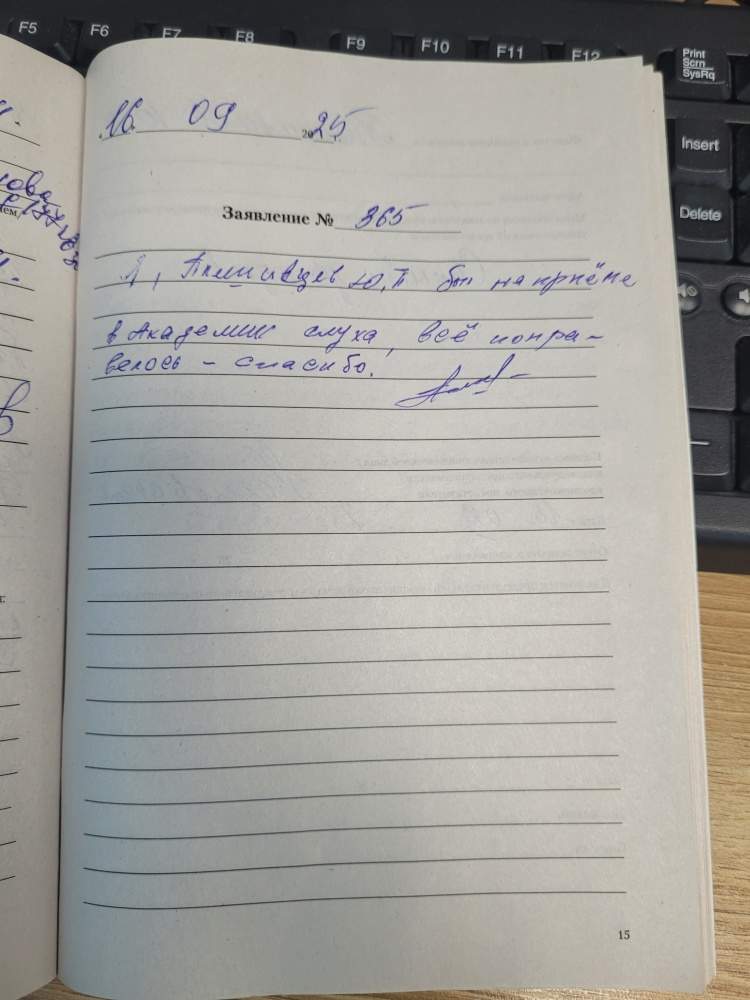 F5 F6 F7 F8 F9 F10 F11 F12
Print Scrn SysRq
Insert
Delete
16. 09 2025
Заявление № 365
Я, Ю.П был на приёме
в Академии слуха, всё понра-
велось - спасибо.
15